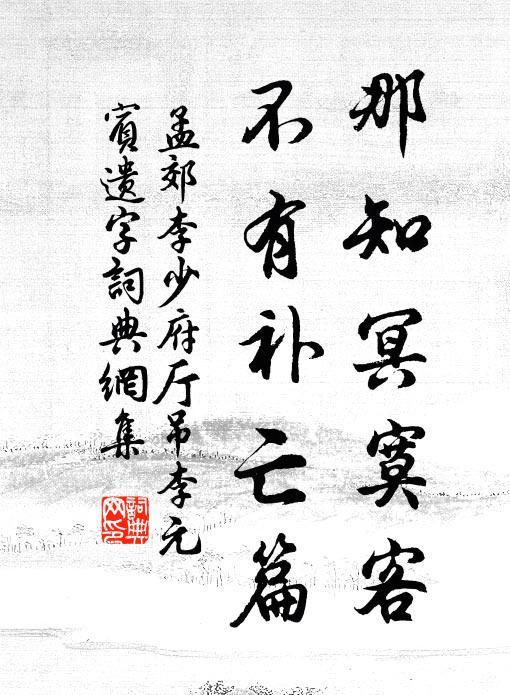 那知冥寞客
不有补亡篇
孟郊李少府厅吊李元
賓遗字詞典網集
詞典
网印